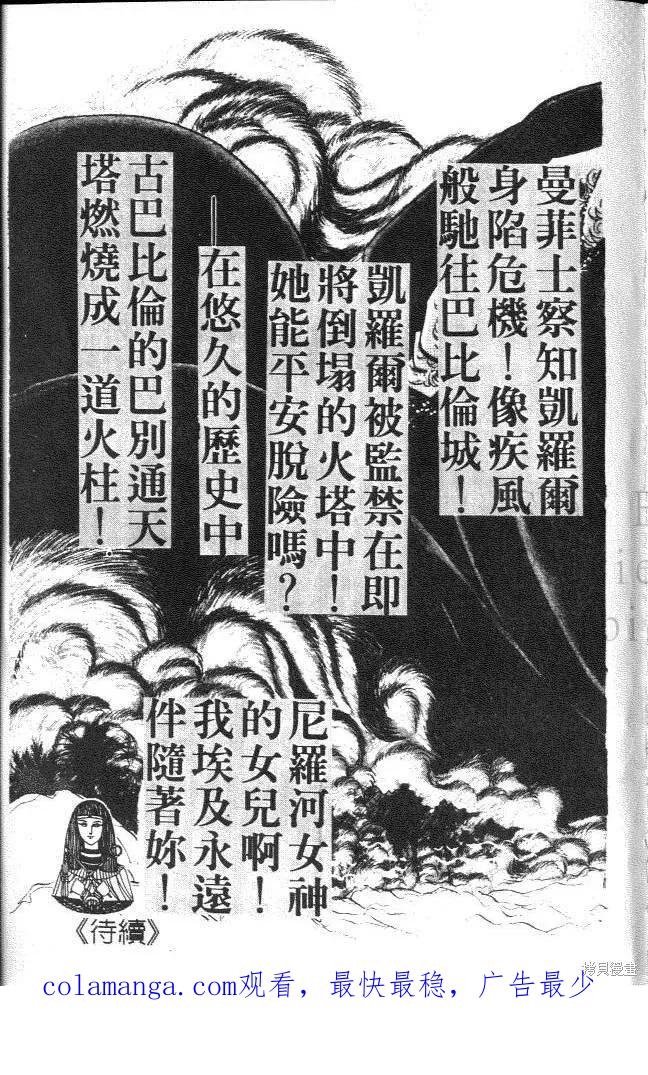 曼菲士察知凱羅爾
身陷危機！像疾風
般馳往巴比倫城！
凱羅爾被監禁在即
將倒塌的火塔中！
她能平安脫險嗎？
——在悠久的歷史中
古巴比倫的巴別通天
塔燃燒成一道火柱！
尼羅河女神
的女兒啊！
我埃及永遠
伴隨著妳！
《待續》
拷貝漫畫
colamanga.com观看，最快最稳，广告最少